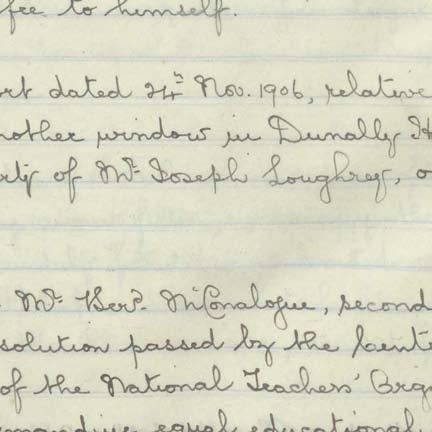 fee to himself.
ort dated 24th Nov. 1906, relative
nother window in Dunally H
rty of Mr. Joseph Loughrey, o
Mr. Bern. McConalogue, second
solution passed by the Cent
of the National Teachers' Orga
manding equal educational